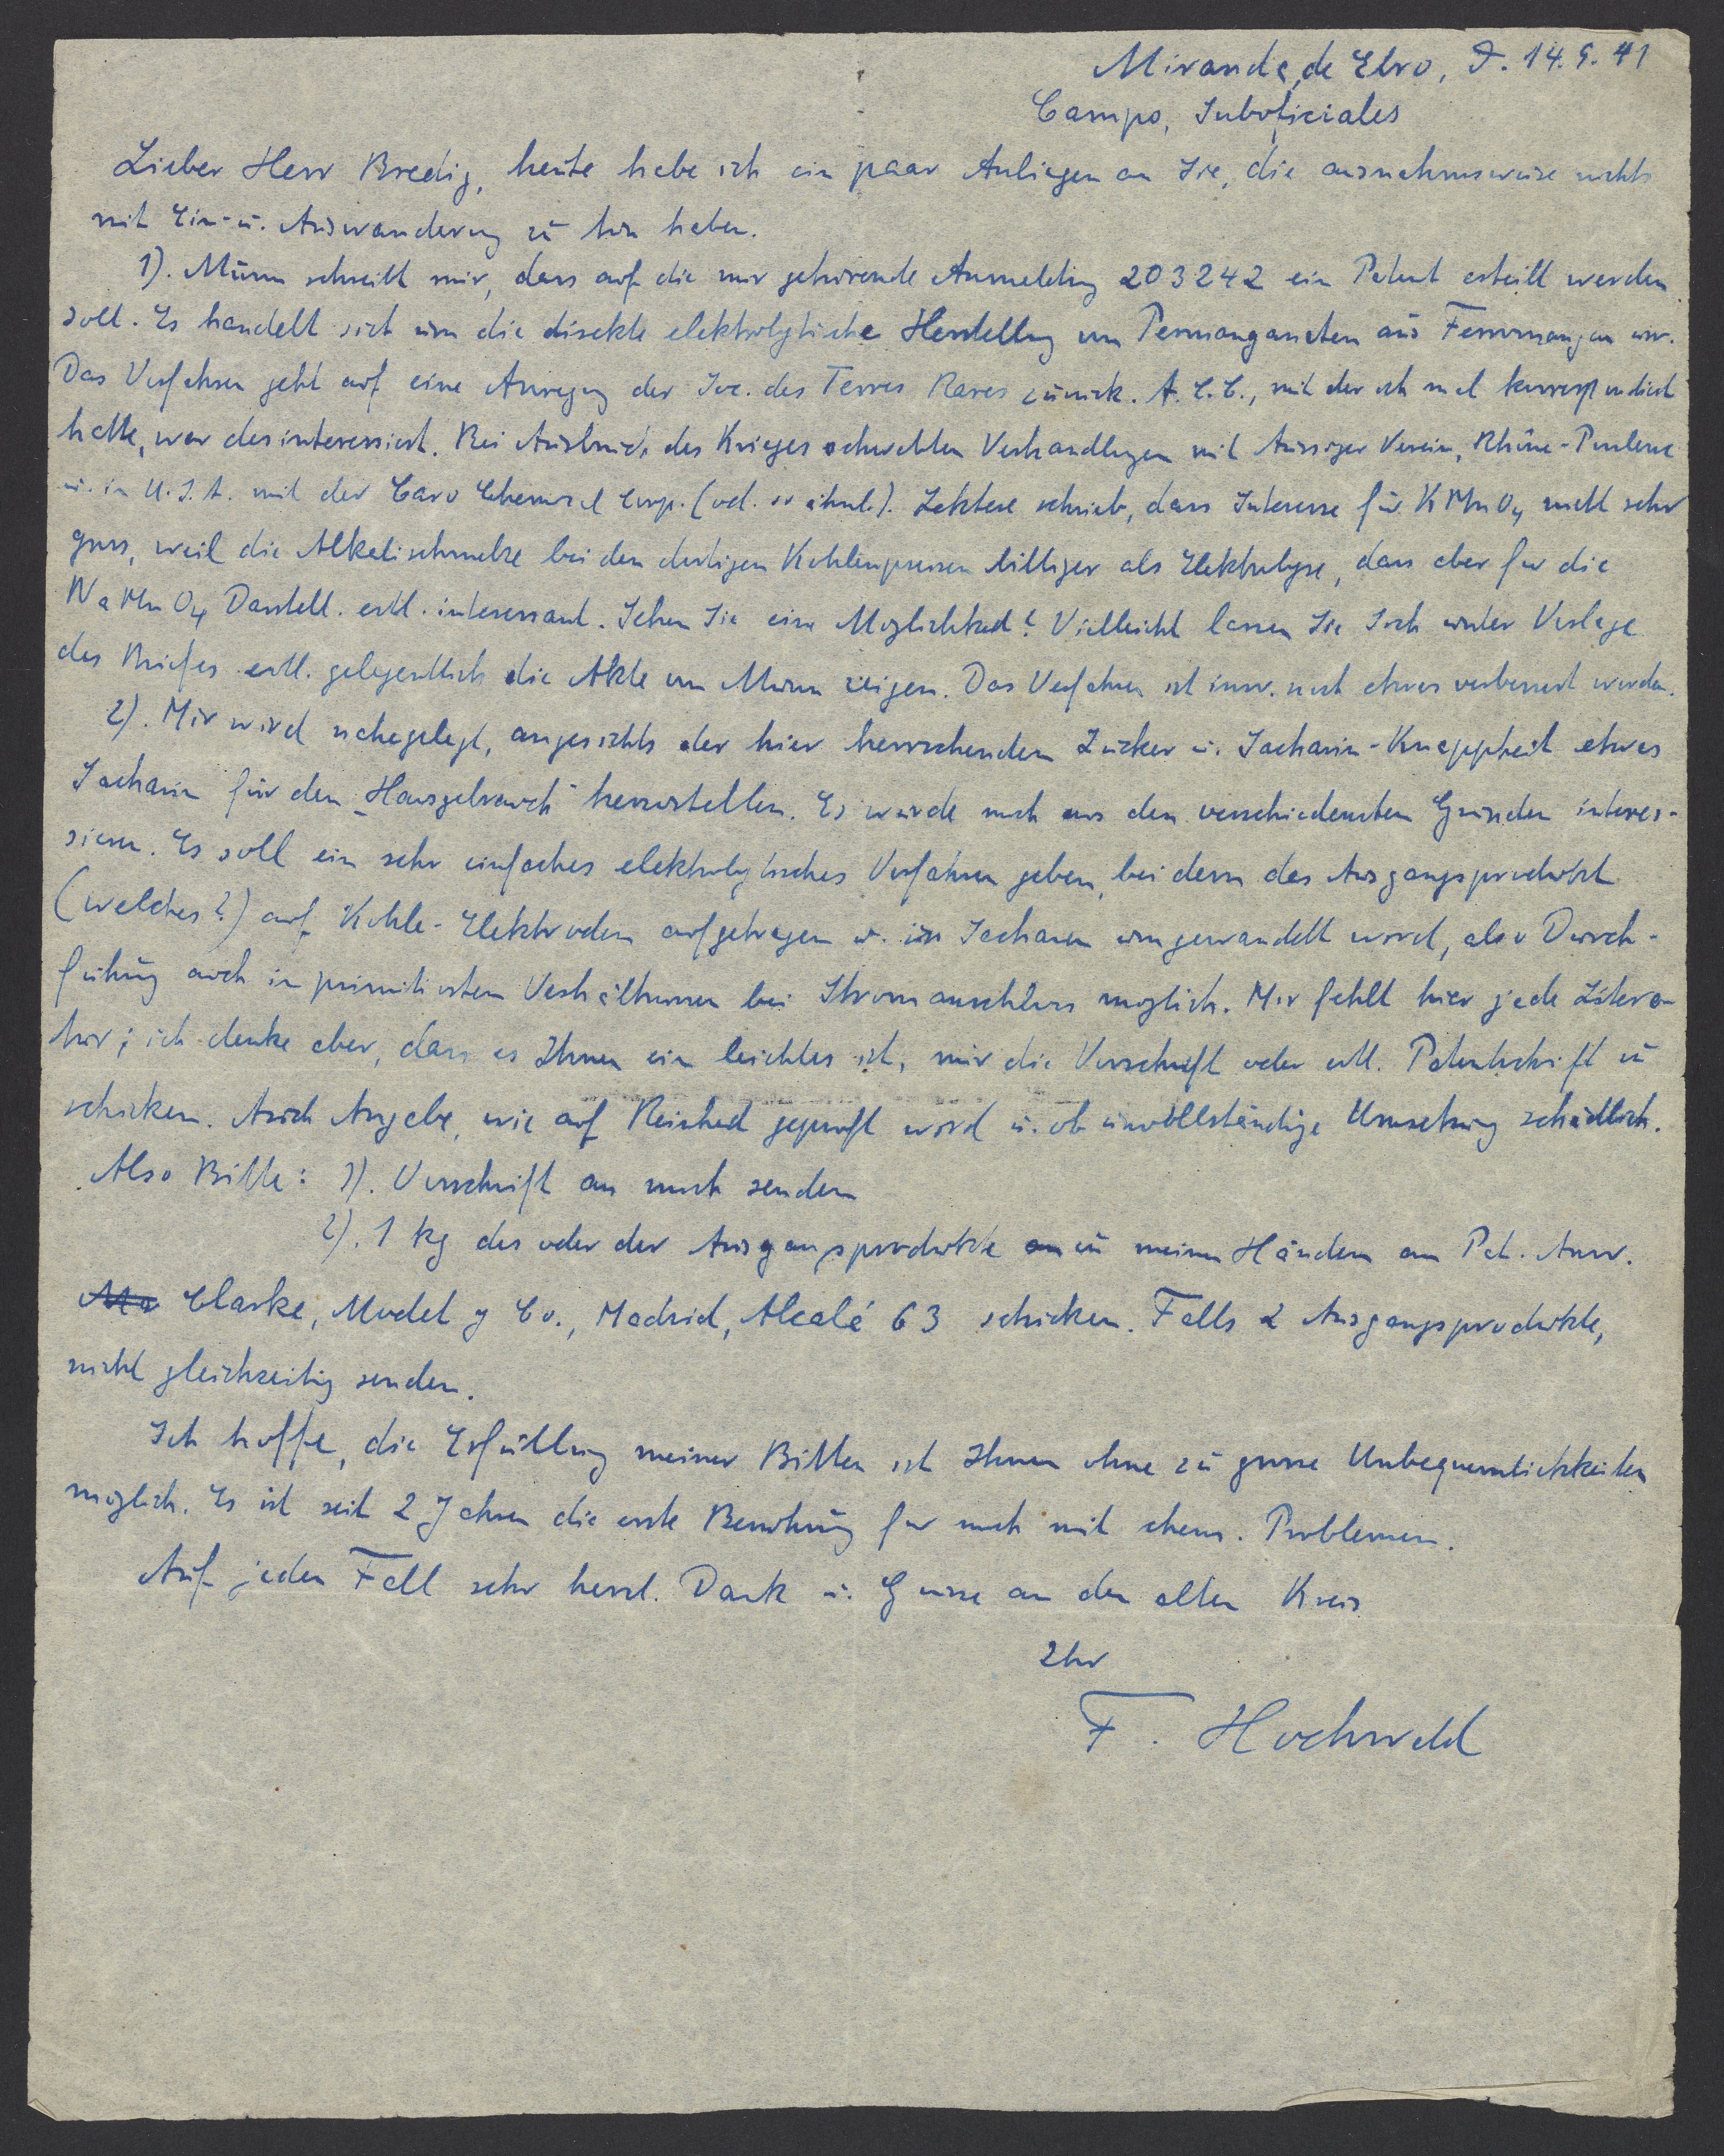 Miranda de Ebro, D. 14.9.41
Campo, Suboficiales
Lieber Herr Bredig, heute habe ich ein paar Anliegen an Sie, die ausnahmsweise nichts
mit Ein- u. Auswanderung zu tun haben.
1). Munn schreibt mir, dass auf die mir gehörende Anmeldung 203242 ein Patent erteilt werden
soll. Es handelt sich um die direkte elektrolytische Herstellung von Permanganaten aus Ferromangan usw.
Das Verfahren geht auf eine Anregung der Soc. des Terres Rares zurück. A.E.C., mit der ich mal korrespondiert
hatte, war desinteressiert. Bei Ausbruch des Krieges schwebten Verhandlungen mit Aussiger Verein, Rhône-Poulenc
u. in U.S.A. mit der Caro Chemical Corp. (od. so ähnl.). Letztere schrieb, dass Interesse für KMnO4 nicht sehr
gross, weil die Alkalischmelze bei den dortigen Kohlenpreisen billiger als Elektrolyse, dass aber für die
NaMnO4 Darstell. evtl. interessant. Sehen Sie eine Möglichkeit? Vielleicht lassen Sie sich unter Vorlage
des Briefes evtl. gelegentlich die Akte von Munn zeigen. Das Verfahren ist inzw. noch etwas verbessert worden.
2). Mir wird nahegelegt, angesichts der hier herrschenden Zucker u. Sacharin-Knappheit etwas
Sacharin für den "Hausgebrauch" herzustellen. Es würde mich aus den verschiedensten Gründen interes-
sieren. Es soll ein sehr einfaches elektrolytisches Verfahren geben, bei dem das Ausgangsprodukt
(welches?) auf Kohle-Elektroden aufgetragen u. in Sacharin umgewandelt wird, also Durch-
führung auch in primitivsten Verhältnissen bei Stromanschluss möglich. Mir fehlt hier jede Litera-
tur; ich denke aber, dass es Ihnen ein leichtes ist, mir die Vorschrift oder evtl. Patentschrift zu
schicken. Auch Angabe, wie auf Reinheit geprüft wird u. ob unvollständige Umsetzung schädlich.
Also Bitte: 1). Vorschrift an mich senden
2). 1 kg des oder der Ausgangsprodukte zu meinen Händen an Pat. Anw.
Clarke, Modet y Co., Madrid, Alcalá 63 schicken. Falls 2 Ausgangsprodukte,
nicht gleichzeitig senden.
Ich hoffe, die Erfüllung meiner Bitten ist Ihnen ohne zu grosse Unbequemlichkeiten
möglich. Es ist seit 2 Jahren die erste Berührung für mich mit chem. Problemen.
Auf jeden Fall sehr herzl. Dank u. Grüsse an den alten Kreis
Ihr
F. Hochwald